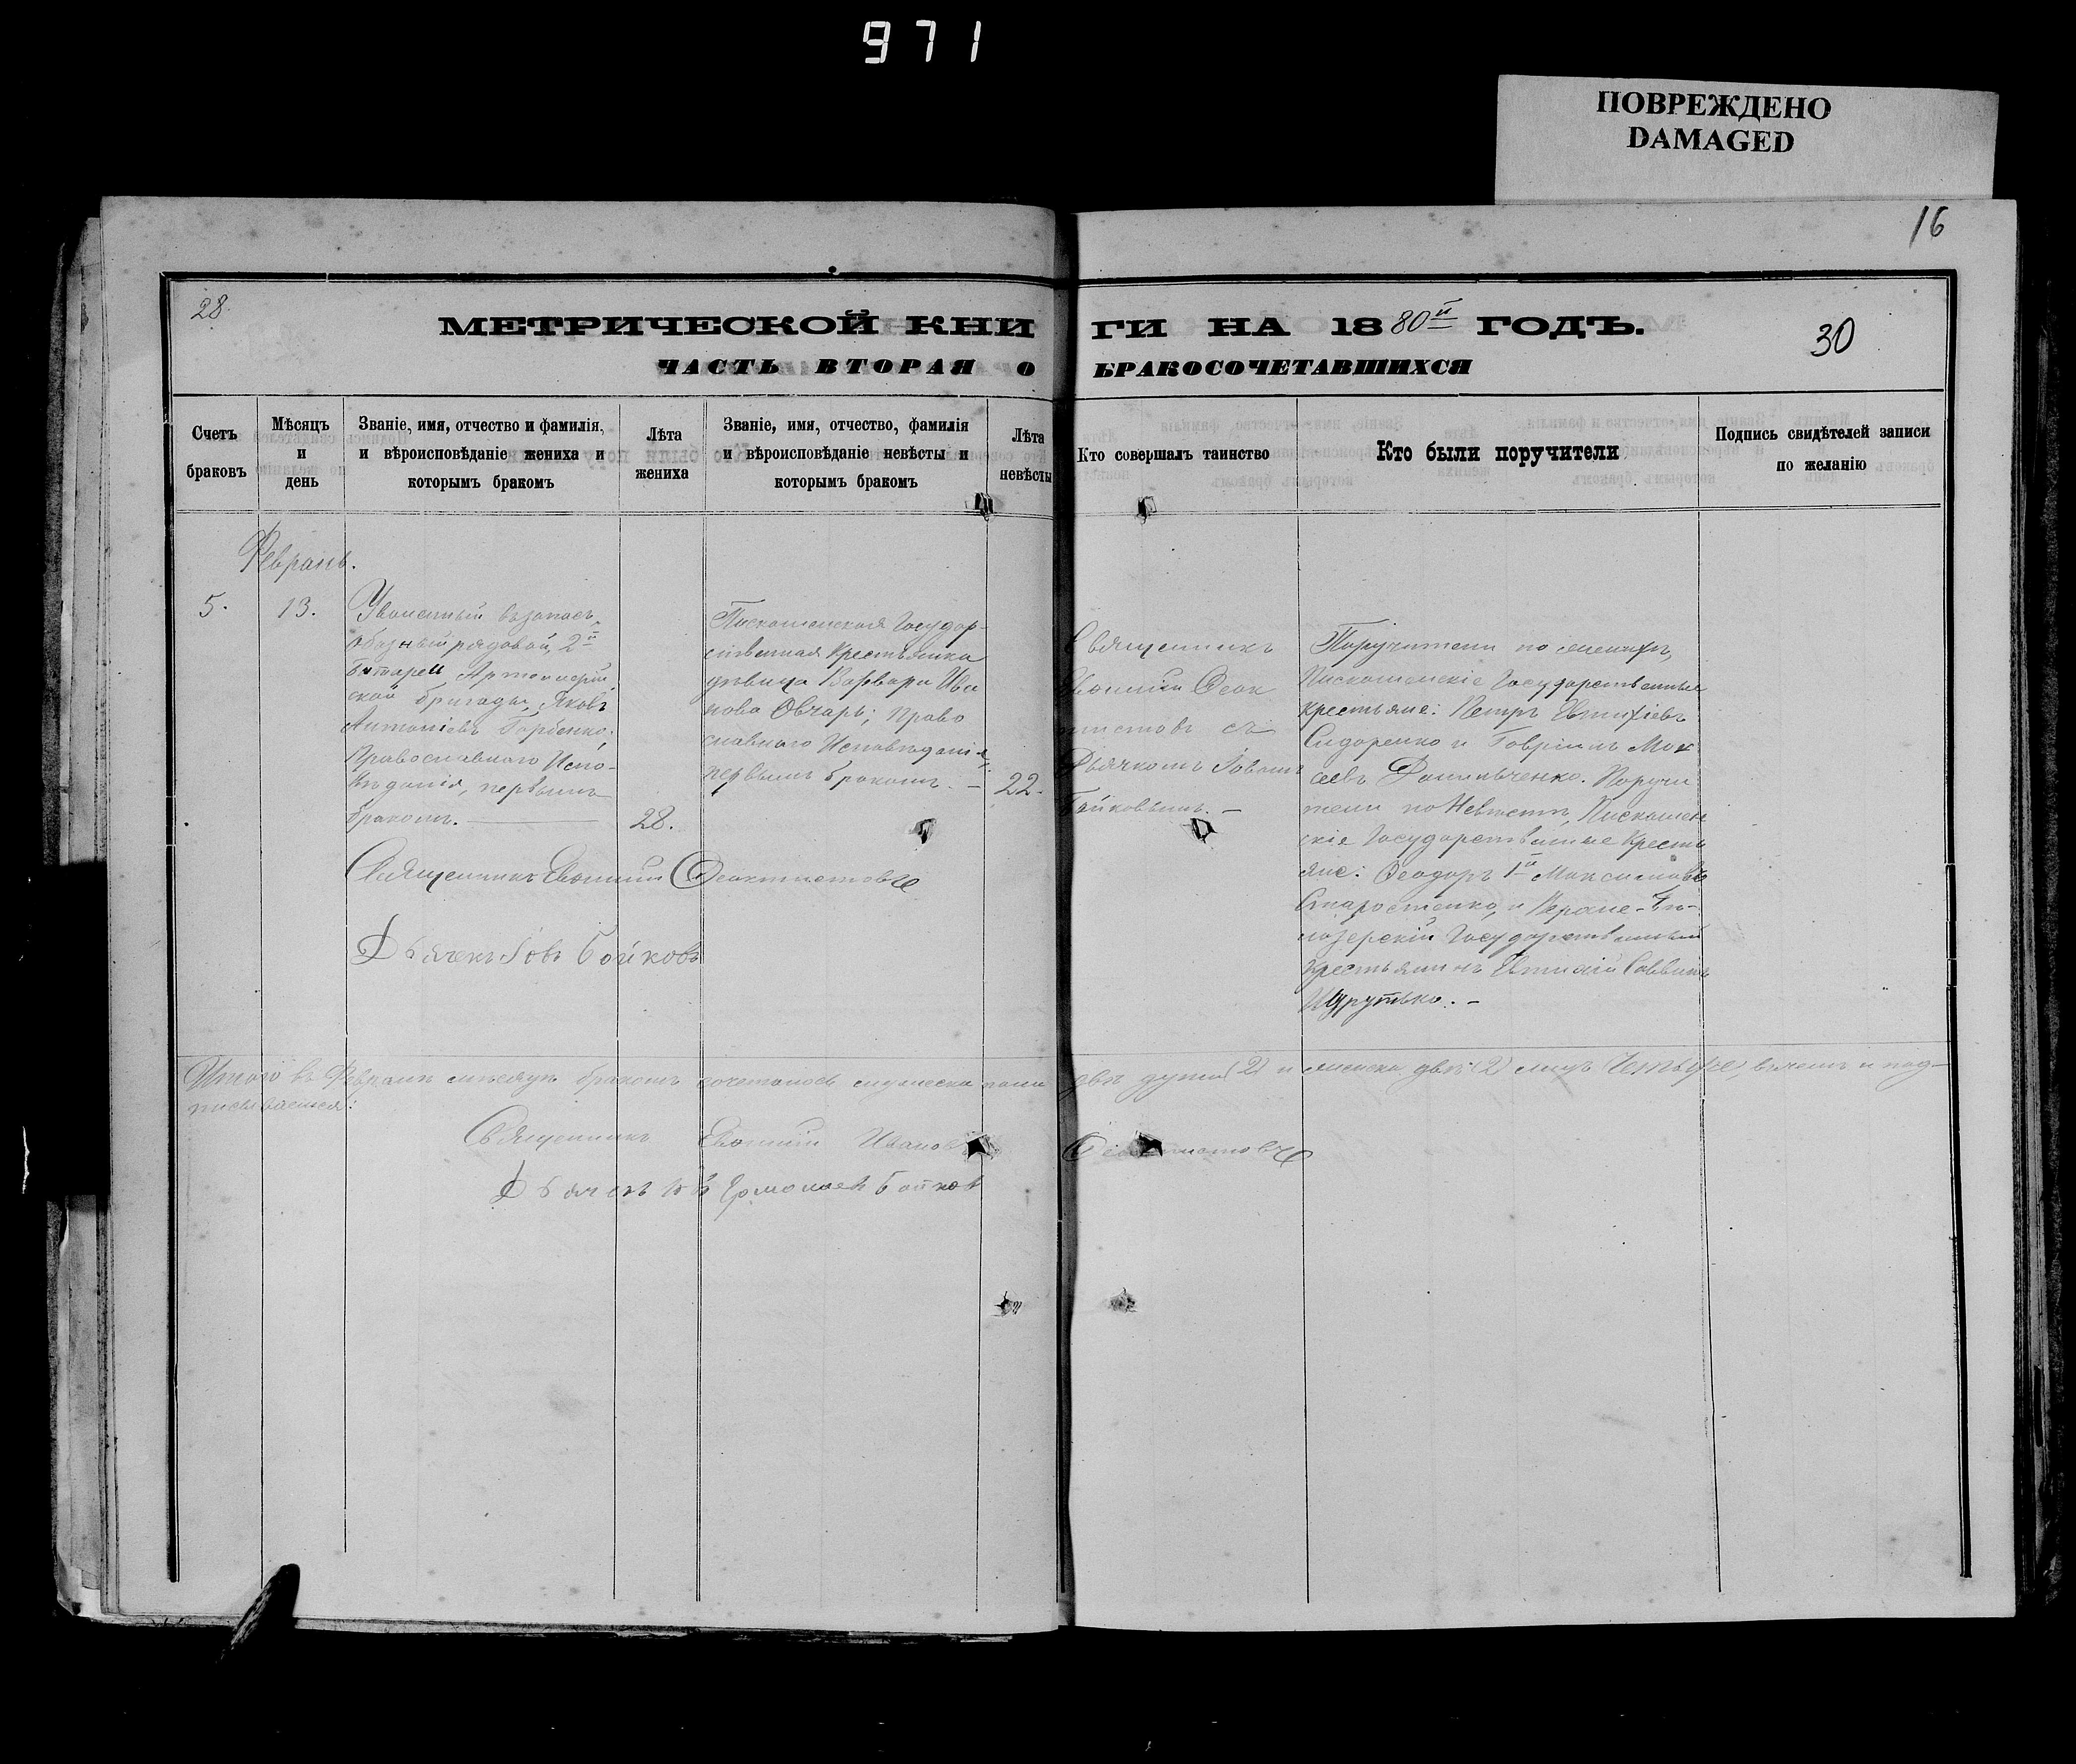 971
ПОВРЕЖДЕНО
DAMAGED
16
28.
МЕТРИЧЕСКОЙ КНИ ГИ НА 1880й ГОДЪ.
30
ЧАСТЬ ВТОРАЯ О БРАКОСОЧЕТАВШИХСЯ
Счетъ браковъ
Мѣсяцъ и день
Званіе, имя, отчество и фамилія, и вѣроисповѣданіе жениха и которымъ бракомъ
Лѣта жениха
Званіе, имя, отчество, фамилія и вѣроисповѣданіе невѣсты и которымъ бракомъ
Лѣта невѣсты
Кто совершалъ таинство
Кто были поручители
Подпись свидѣтелей записи по желанію
Февраль.
5.
13.
Уволенный въ запасъ,
обозный рядовой, 2й
батареи Артиллерій
ской бригады, Яковъ
Антоніевъ Горбенко;
Православнаго Испо-
вѣданія, первымъ
бракомъ.
28.
Государ-
ственная Крестьянка
дѣвица Варвара Ива
нова Овчарь; Право
славнаго Исповѣданія,
первымъ бракомъ. —
22.
Священникъ
Ѳеок
тистовъ съ
Дьячкомъ Іовомъ
Бойковымъ. —
Поручители по женихѣ,
Пискошинскіе Государственные
крестьяне: Петръ Евтихіевъ
Сидоренко и Гавріилъ Мок
сеевъ Данильченко. Поручи
тели по Невѣстѣ, Пискошин
скіе Государственные Кресть
яне: Ѳеодоръ 1й Максимовъ
Старостенко, и Верхне-Бѣ-
лозерскій Государственный
крестьянинъ Саввинъ
Священникъ Евѳимій Ѳеоктистовъ
Дьячекъ Іовъ Бойковъ
Итого въ Февралѣ мѣсяцѣ бракомъ сочеталось мужеска пола двѣ души (2) и женска двѣ (2) лицъ Четыре, въ чемъ и под-
писываемся:
Священникъ Евѳимій Ивановъ Ѳеоктистовъ
Дьячекъ Іовъ Ермолаевъ Бойковъ